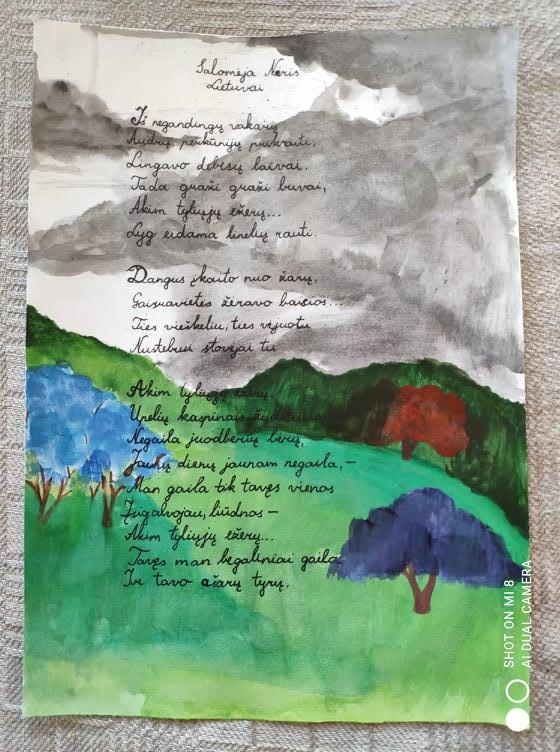 Salomėja Nėris
Lietuvai
Iš negandingų vakarų
Audrų, perkūnijų prikrauti,
Lingavo debesų laivai.
Tada graži graži buvai,
Akim tyliųjų ežerų...
Lyg eidama linelių rauti.
Dangus įkaito nuo žarų,
Gaisravietės žėravo baisios...
Ties vieškeliu, ties vėjuotu
Nustebus stovėjai tu
Akim tyliųjų ežerų,
Upelių kaspinais
Negaila juodbėrių tėvų,
Jaunų dienų jaunam negaila,-
Man gaila tik tavęs vienos
Užgalvojau, liūdnos -
Akim tyliųjų ežerų...
Tavęs man begaliniai gaila
Ir tavo ašarų tyrų.
SHOT ON MI 8
AI DUAL CAMERA